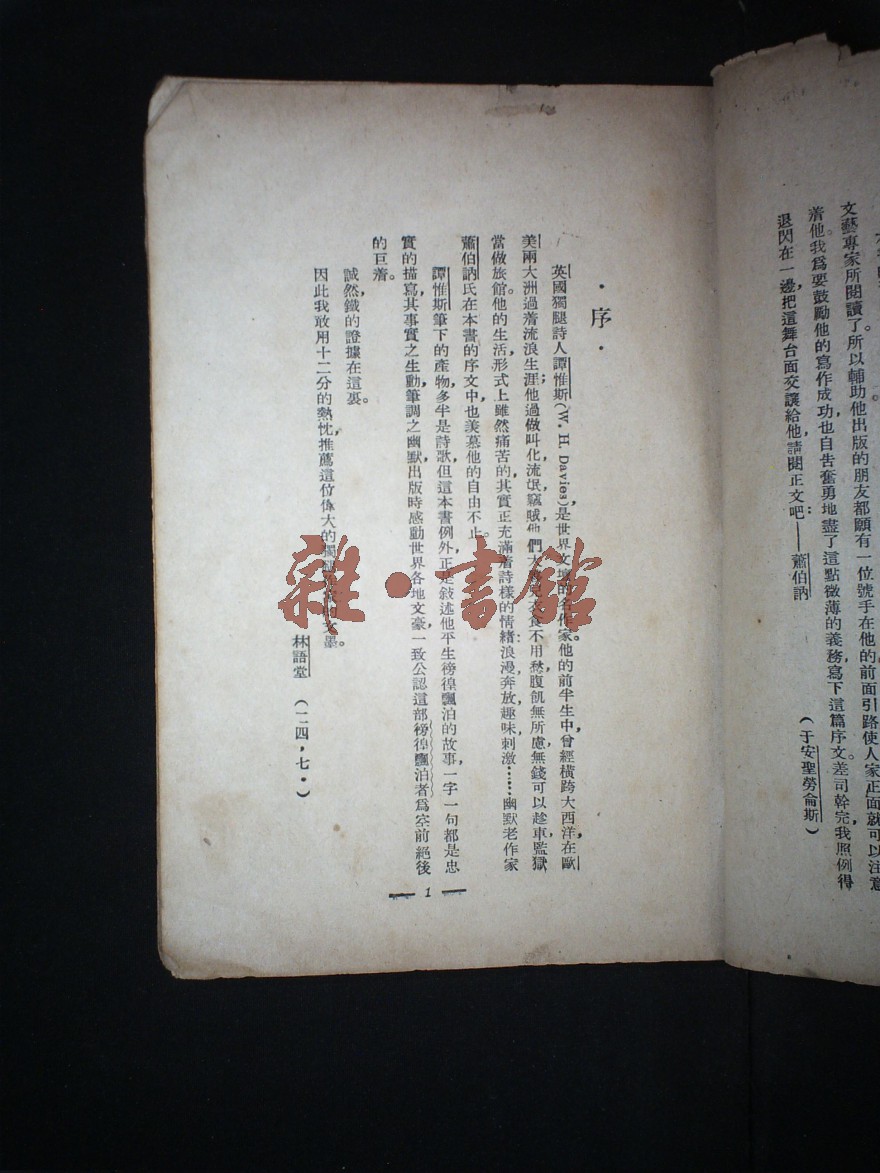 文藝專家所閱讀了所以輔助他出版的朋友都願有一位號手在他的前面引路使人家正面就可以注意
着他。我爲要鼓勵他的寫作成功也自告奮勇地盡了這點微薄的義務，寫下這篇序文。差司幹完，我照例得
退閃在一邊，把這舞台面交讓給他，請閱正文吧：——蕭伯訥
（于安聖勞侖斯）
·序·
英國獨腿詩人譚惟斯（W. H. Davies）是世界文壇的名作家。他的前半生中，曾經橫跨大西洋，在歐
美兩大洲過着流浪生涯；他過做叫化，流氓，竊賊，他們大 食不用愁，腹飢無所慮，無錢可以趁車，監獄
當做旅館。他的生活形式上雖然痛苦的，其實正充滿着詩樣的情緒，浪漫，奔放，趣味，刺激……幽默老作家
蕭伯訥氏在本書的序文中，也羡慕他的自由不止。
譚惟斯筆下的產物，多半是詩歌，但這本書例外，正是敍述他平生徬徨飄泊的故事，一字一句都是忠
實的描寫，其事實之生動，筆調之幽默，出版時感動世界各地文豪，一致公認這部徬徨飄泊者爲空前絕後
的巨着。
誠然，鐵的證據在這裏。
因此我敢用十二分的熱忱，推薦這位偉大的獨腿 文墨。
林語堂（二四，七·）
1
雜·書館